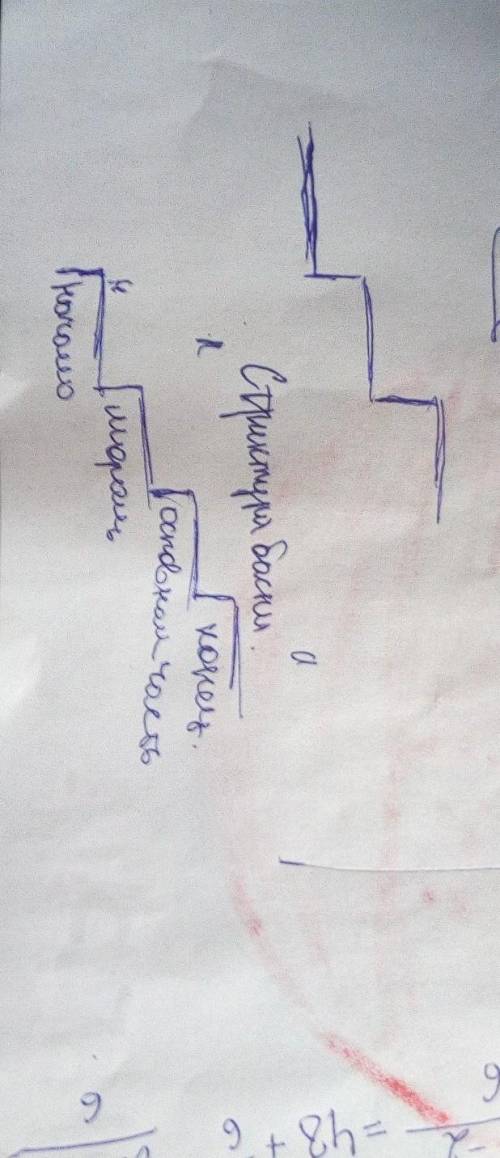 Структура басни.
начало
мораль
основная часть
конец.
= 48 + 6
6